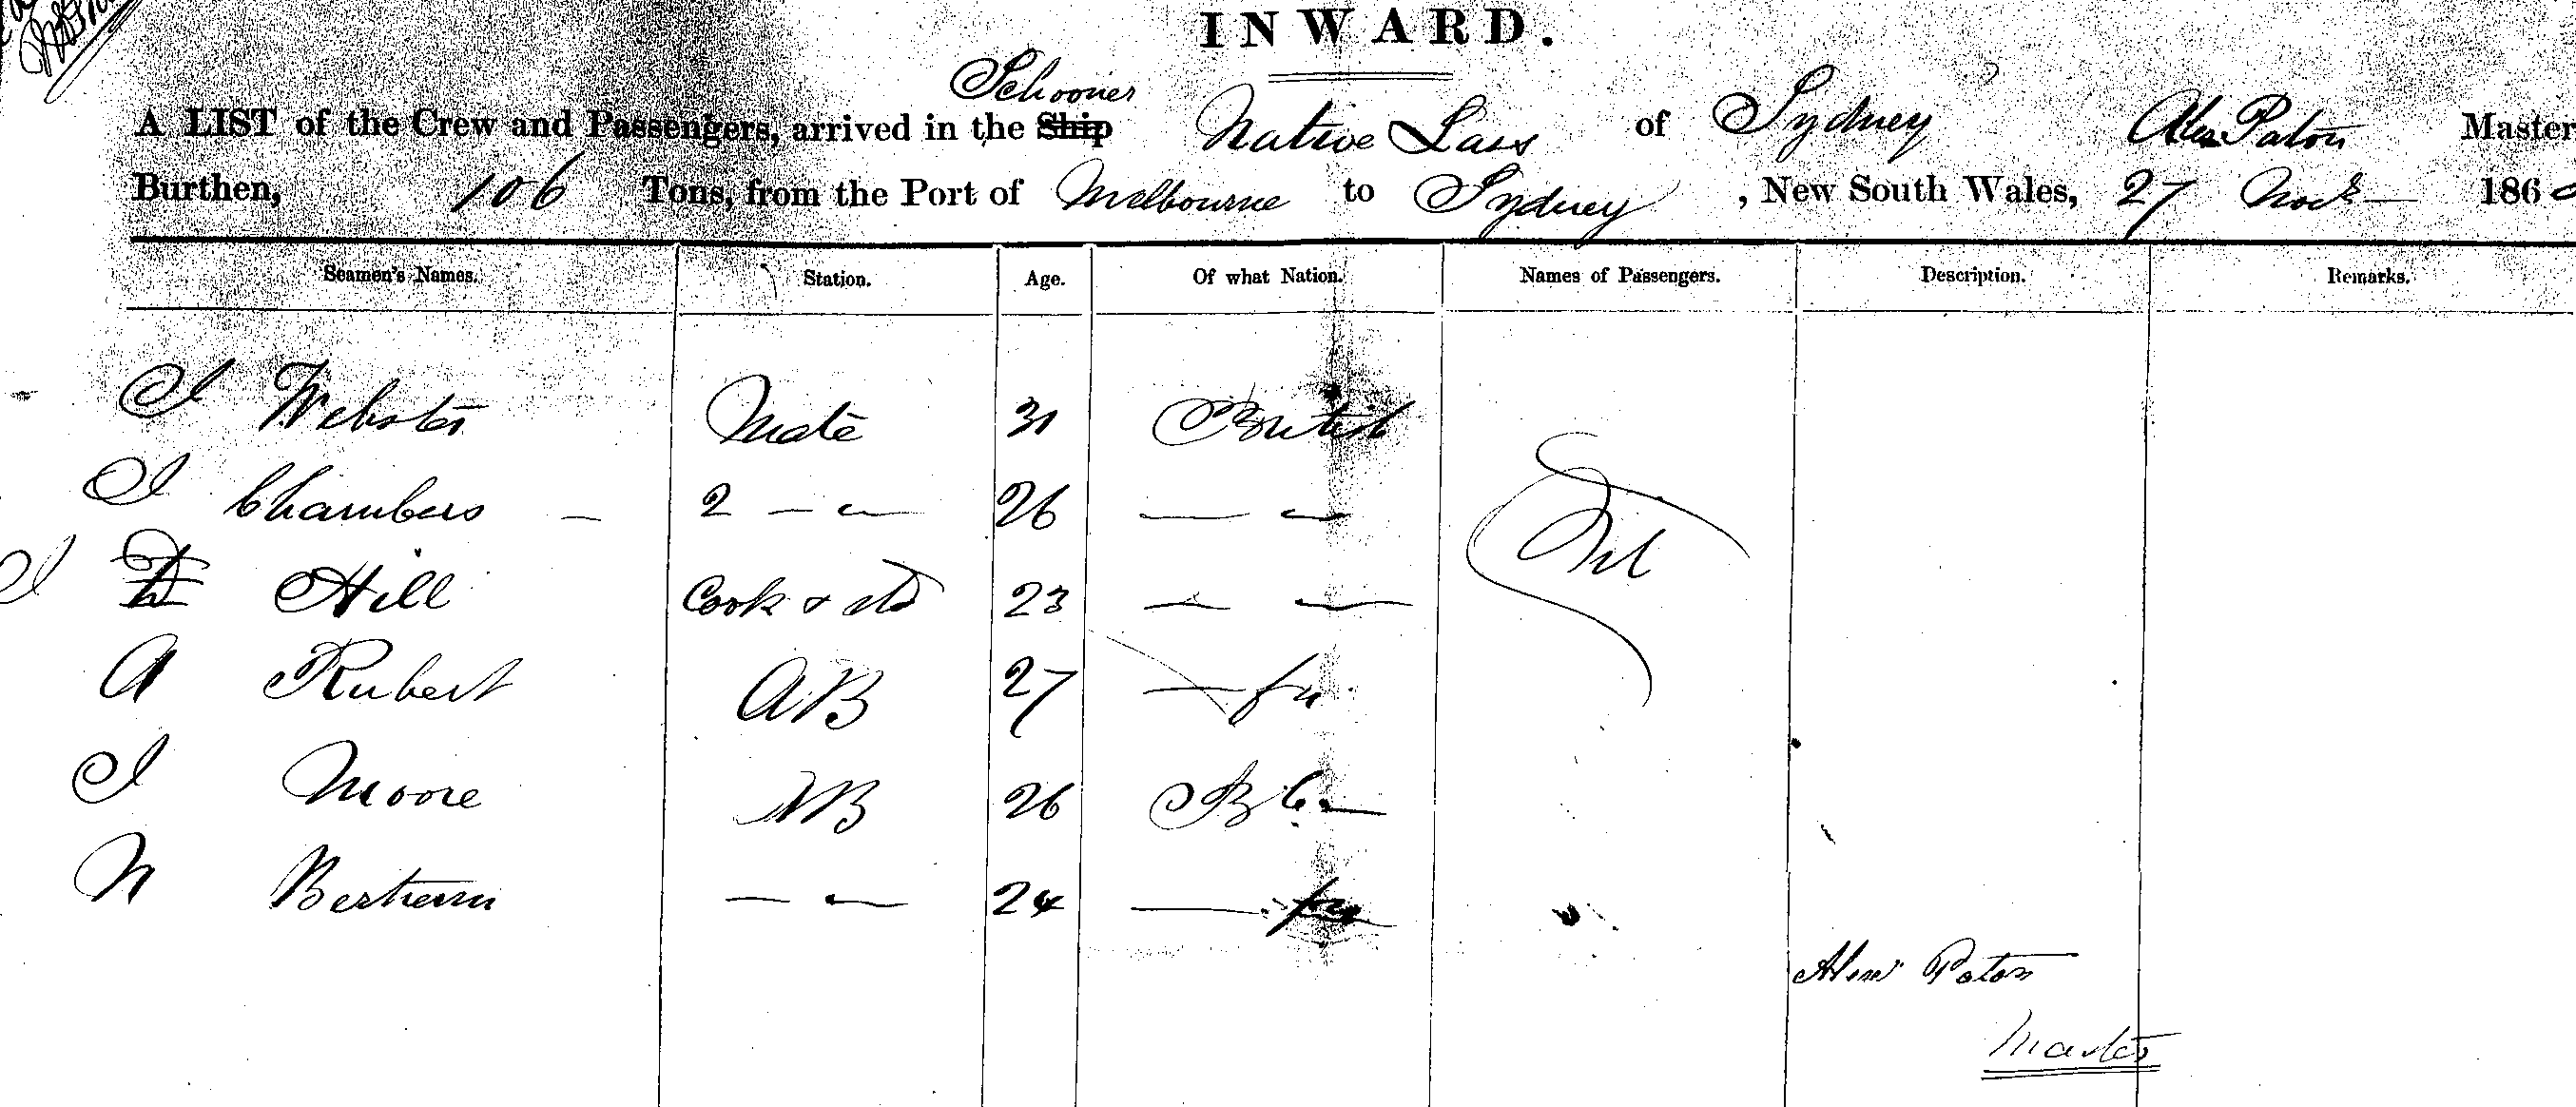 INWARD.
Schooner
A LIST of the Crew and Passengers, arrived in the Ship Native Lass of Sydney Alex Paton Master
Burthen, 106 Tons, from the Port of Melbourne to Sydney, New South Wales, 27 186
Seamen's Names. Station. Age. Of what Nation. Names of Passengers. Description. Remarks.
J Webster Mate 31 British
J Chambers — 2 — — 26 — —
J Hill Cook & std 23 — — Nil
A Rubert AB 27 —
J Moore AB 26
N Bertram — — 24 —
Alexr Paton
Master